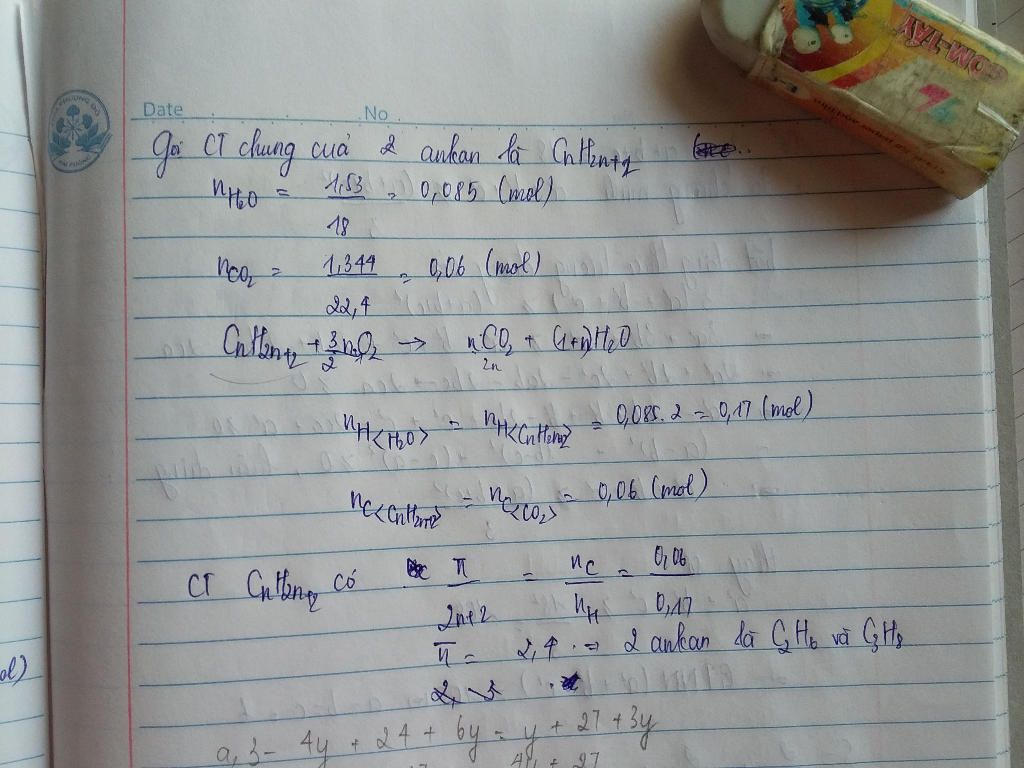 GÔM-TẨY
Date No
Gọi CT chung của 2 ankan là CnH2n+2
nH2O = 1,53/18 = 0,085 (mol)
nCO2 = 1,344/22,4 = 0,06 (mol)
CnH2n+2 + 3/2 O2 → nCO2 + (1+n)H2O
2n
nH<H2O> = nH<CnH2n+2> = 0,085.2 = 0,17 (mol)
nC<CnH2n+2> = nC<CO2> = 0,06 (mol)
CT CnH2n+2 có n/2n+2 = nC/nH = 0,06/0,17
n = 2,4 ⇒ 2 ankan là C2H6 và C3H8
2, 3
a, 3 - 4y + 24 + 6y = y + 27 + 3y
4y + 27
ol)